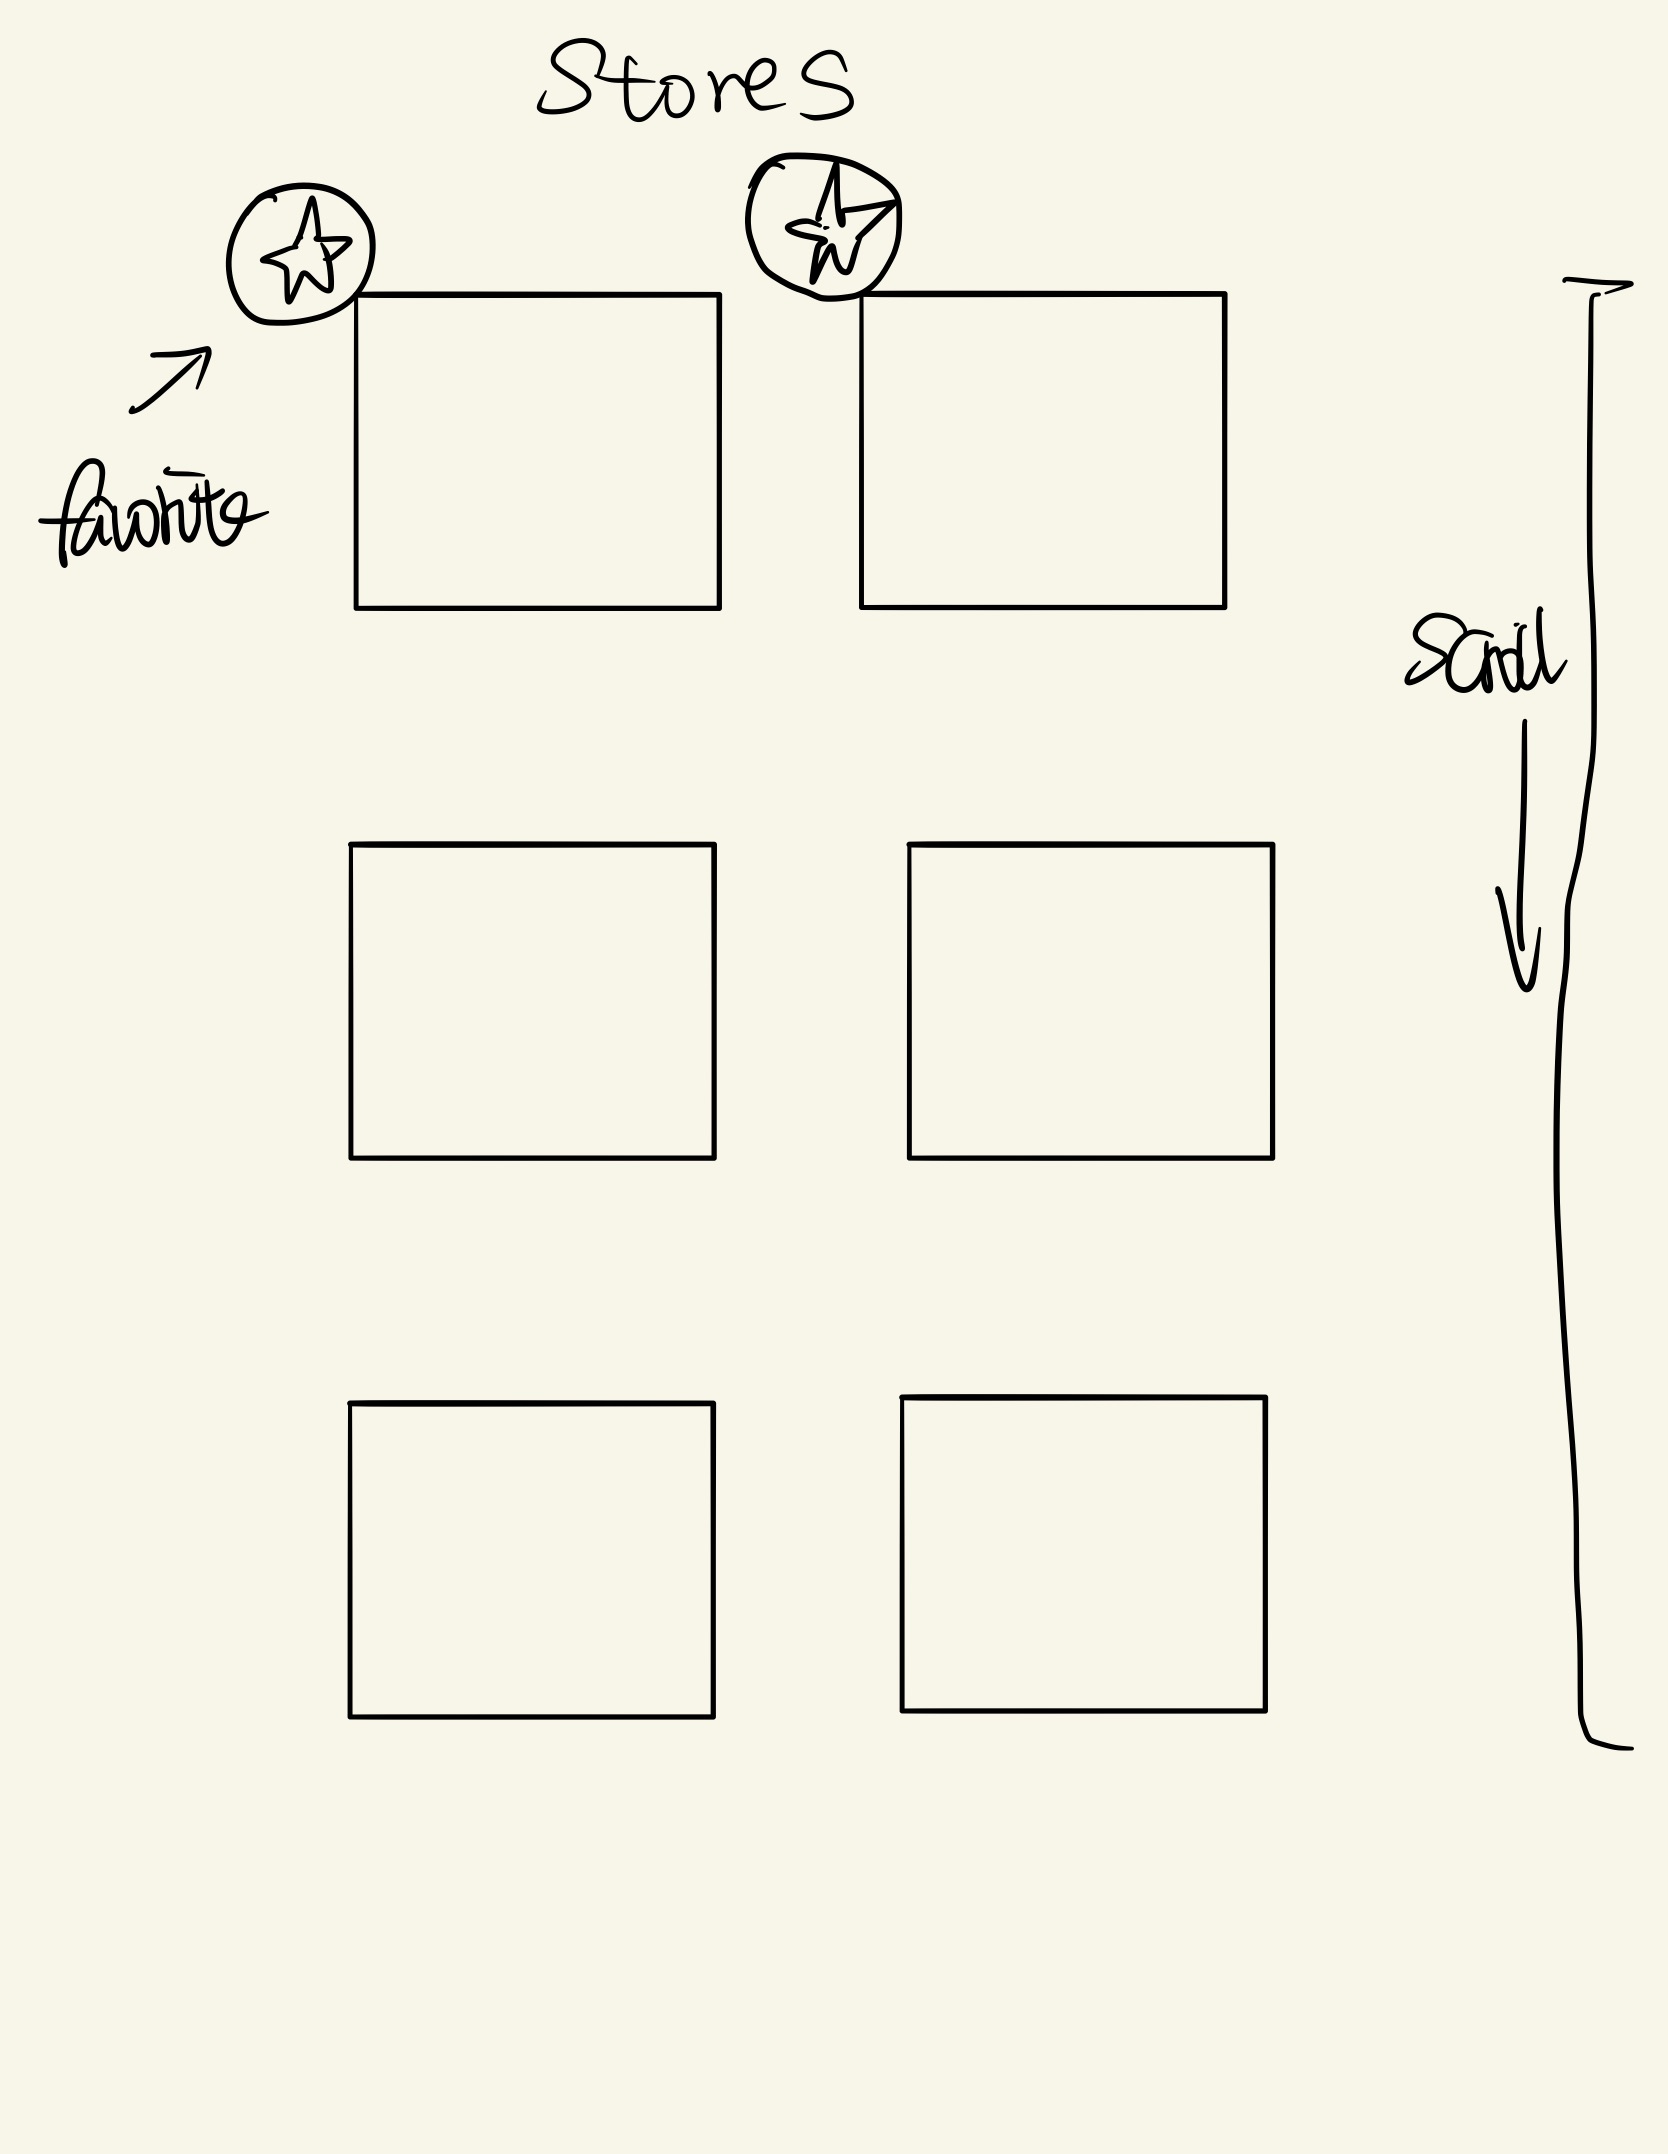 Stores
favorite
Scroll